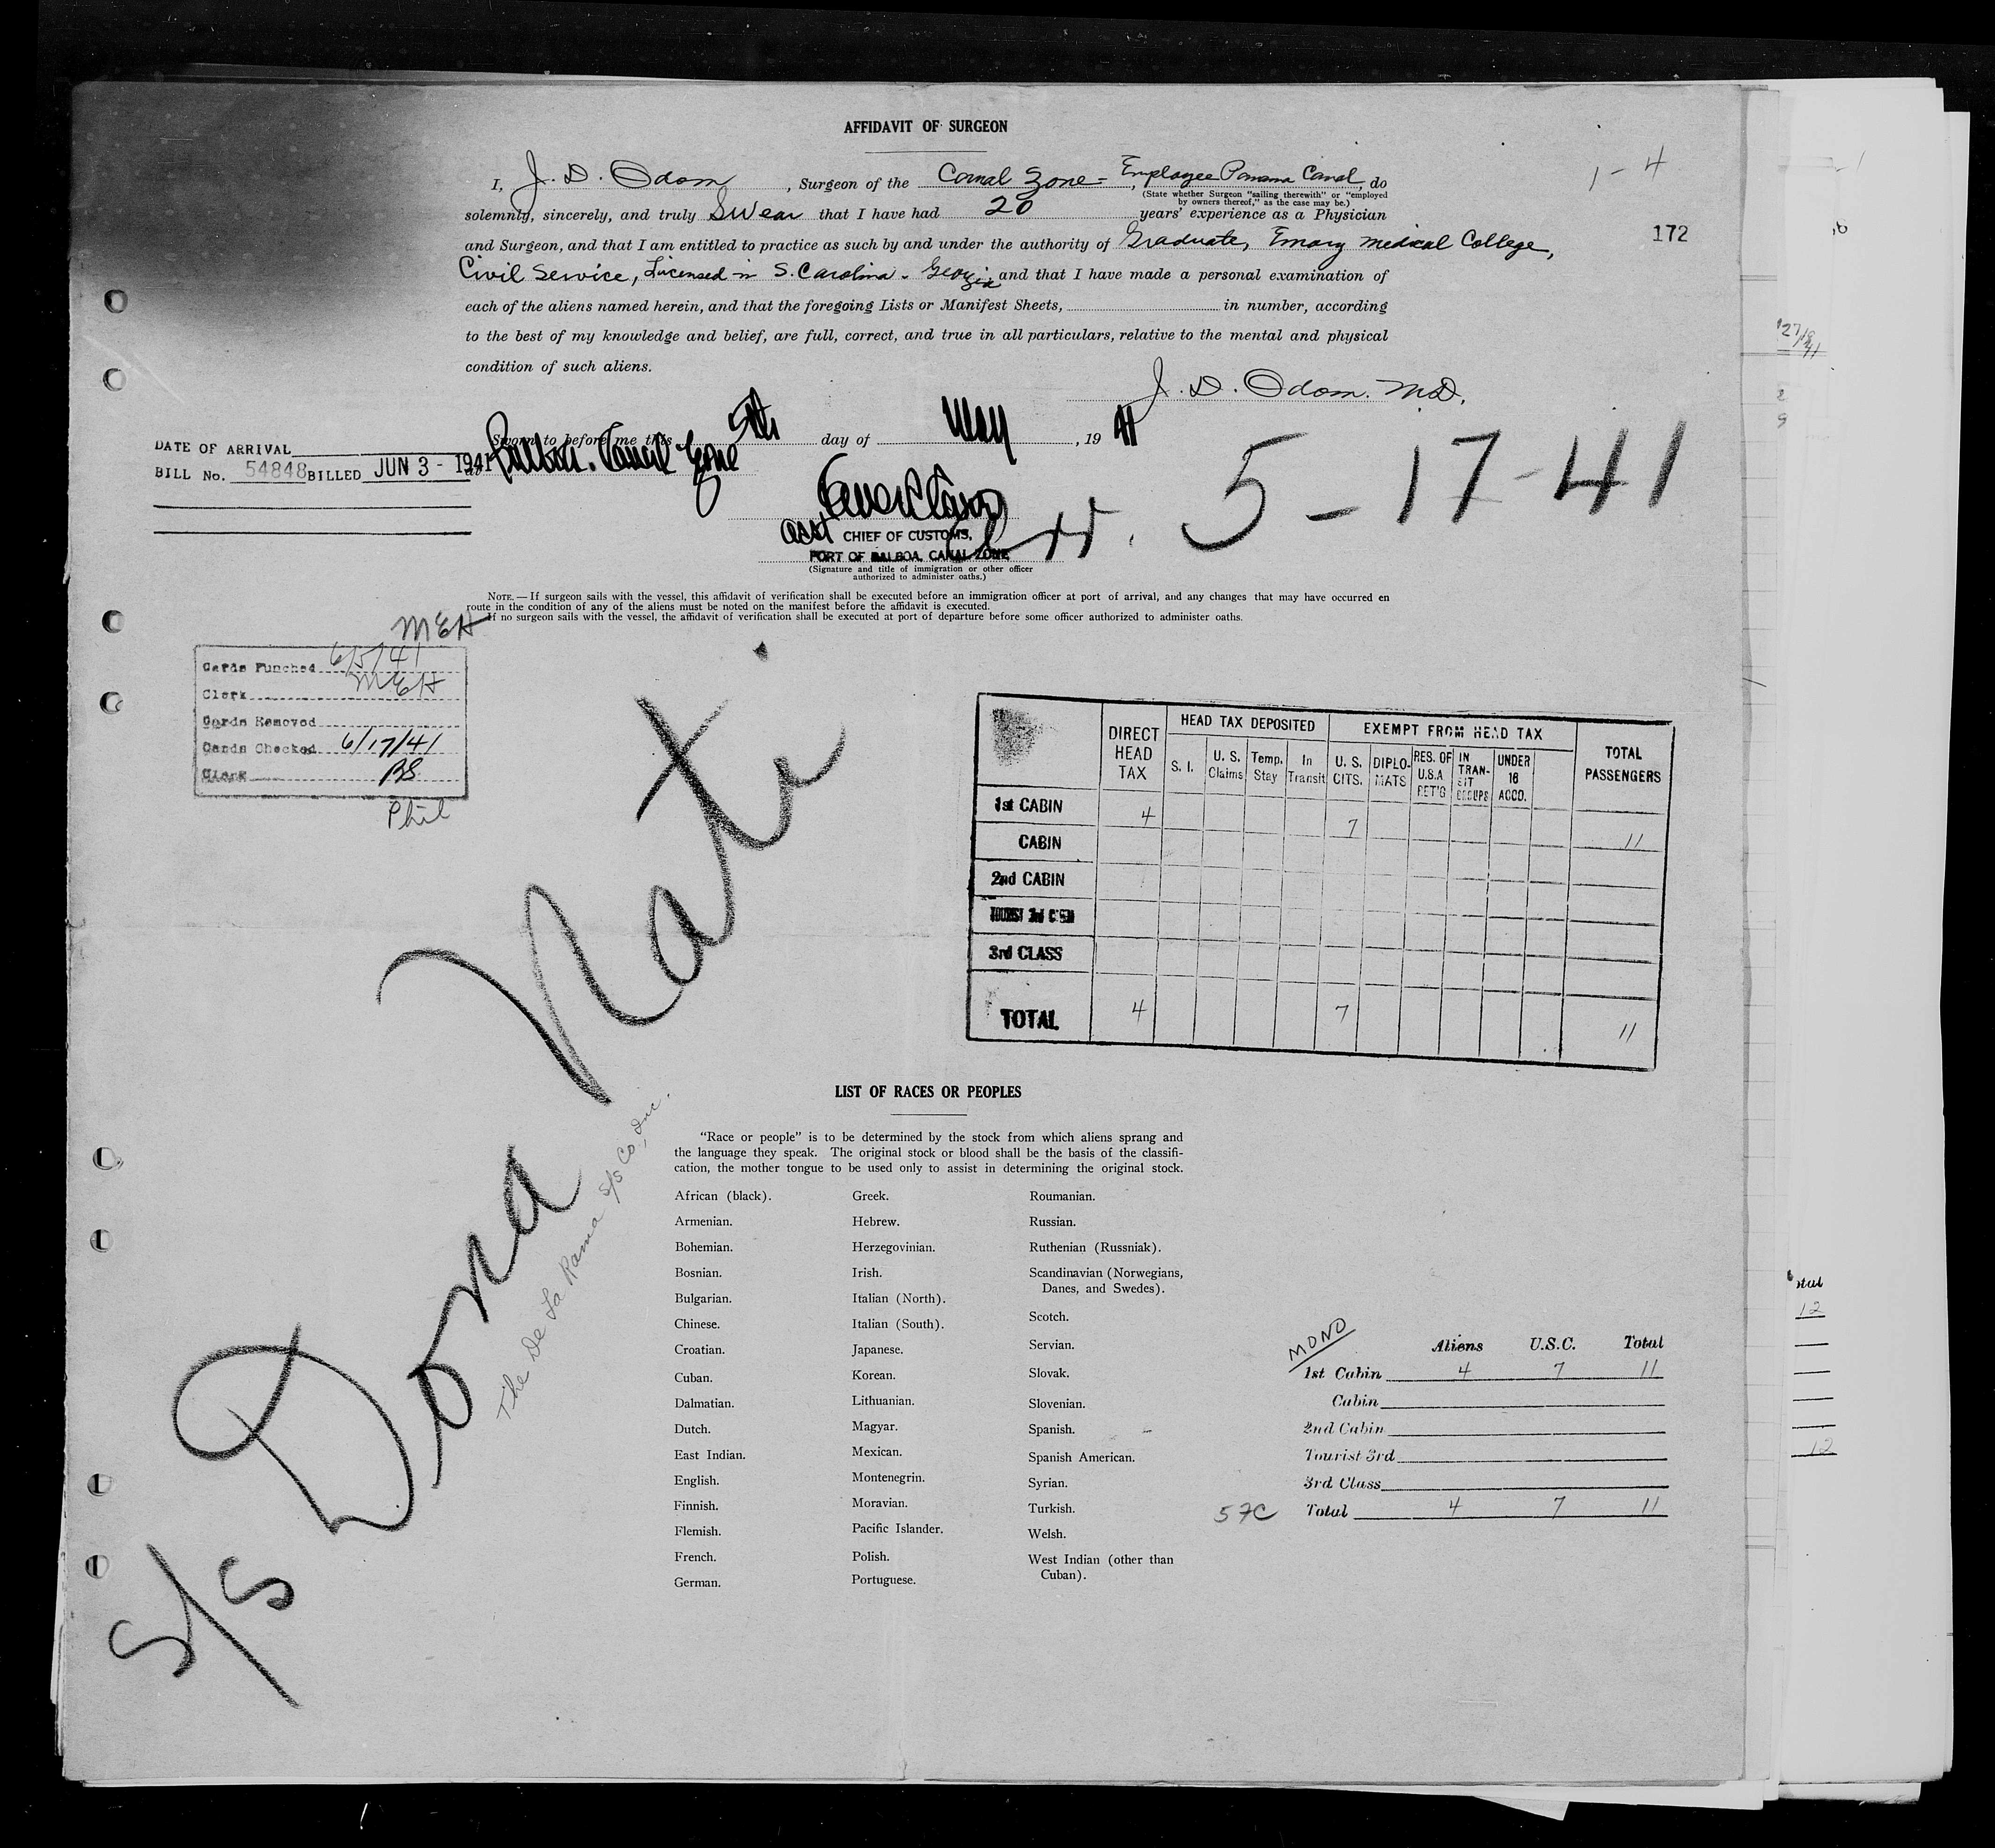 AFFIDAVIT OF SURGEON
1-4
I, J. D. Odom, Surgeon of the Canal Zone - Employee Panama Canal, do
(State whether Surgeon "sailing therewith" or "employed
by owners thereof," as the case may be.)
solemnly, sincerely, and truly Swear that I have had 20 years' experience as a Physician
and Surgeon, and that I am entitled to practice as such by and under the authority of Graduate, Emory Medical College,
172
Civil Service, Licensed in S. Carolina - Georgia and that I have made a personal examination of
each of the aliens named herein, and that the foregoing Lists or Manifest Sheets, in number, according
to the best of my knowledge and belief, are full, correct, and true in all particulars, relative to the mental and physical
condition of such aliens.
J. D. Odom. MD.
Sworn to before me this 5th day of May, 1941
at Balboa, Canal Zone
DATE OF ARRIVAL
BILL No. 54848 BILLED JUN 3 - 1941
Arr. 5-17-41
Acst CHIEF OF CUSTOMS,
PORT OF BALBOA, CANAL ZONE
(Signature and title of immigration or other officer
authorized to administer oaths.)
NOTE.—If surgeon sails with the vessel, this affidavit of verification shall be executed before an immigration officer at port of arrival, and any changes that may have occurred en
route in the condition of any of the aliens must be noted on the manifest before the affidavit is executed.
If no surgeon sails with the vessel, the affidavit of verification shall be executed at port of departure before some officer authorized to administer oaths.
MEH
Cards Punched 6/5/41
Clerk MEH
Cards Removed
Cards Checked 6/17/41
Clerk BS
Phil
DIRECT HEAD TAX
HEAD TAX DEPOSITED
EXEMPT FROM HEAD TAX
TOTAL PASSENGERS
S. I.
U. S. Claims
Temp. Stay
In Transit
U. S. CITS.
DIPLO- MATS
RES. OF U.S.A RET'G
IN TRAN- SIT GROUPS
UNDER 16 ACCO.
1st CABIN 4 7 11
CABIN
2nd CABIN
TOURIST 3rd CABIN
3rd CLASS
TOTAL 4 7 11
S/S Dona Nati
The De La Rama S/S Co, Inc.
LIST OF RACES OR PEOPLES
"Race or people" is to be determined by the stock from which aliens sprang and
the language they speak. The original stock or blood shall be the basis of the classifi-
cation, the mother tongue to be used only to assist in determining the original stock.
African (black).
Armenian.
Bohemian.
Bosnian.
Bulgarian.
Chinese.
Croatian.
Cuban.
Dalmatian.
Dutch.
East Indian.
English.
Finnish.
Flemish.
French.
German.
Greek.
Hebrew.
Herzegovinian.
Irish.
Italian (North).
Italian (South).
Japanese.
Korean.
Lithuanian.
Magyar.
Mexican.
Montenegrin.
Moravian.
Pacific Islander.
Polish.
Portuguese.
Roumanian.
Russian.
Ruthenian (Russniak).
Scandinavian (Norwegians,
Danes, and Swedes).
Scotch.
Servian.
Slovak.
Slovenian.
Spanish.
Spanish American.
Syrian.
Turkish.
Welsh.
West Indian (other than
Cuban).
MONO
Aliens U.S.C. Total
1st Cabin 4 7 11
Cabin
2nd Cabin
Tourist 3rd
3rd Class
57C
Total 4 7 11
12
12